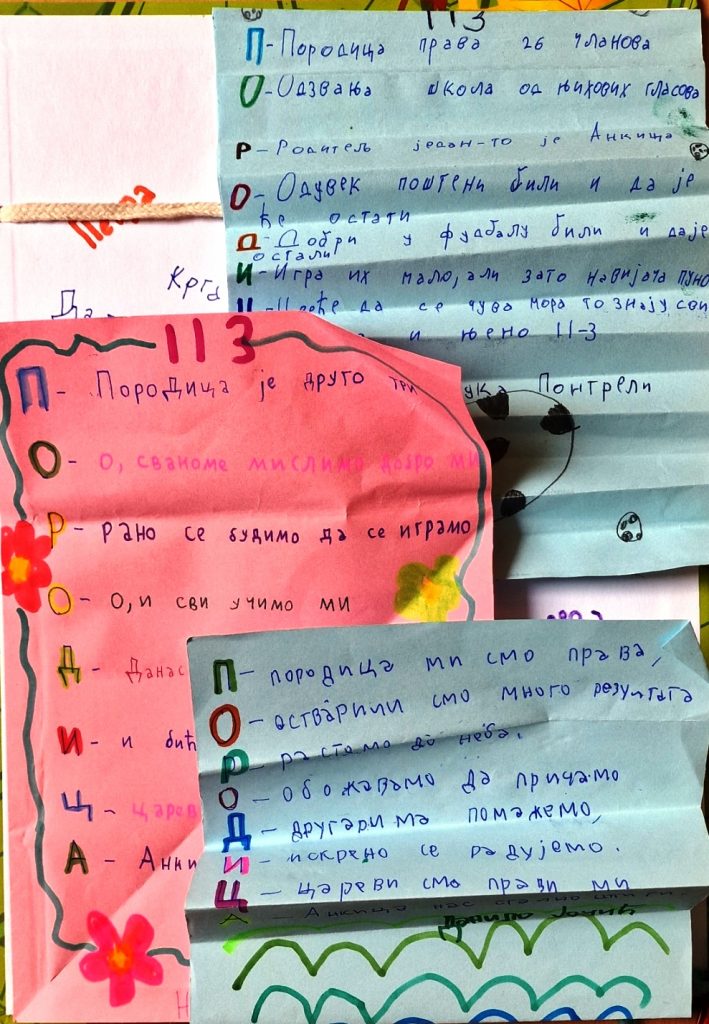 113
П-Породица права 26 чланова
О-Одзвања школа од њихових гласова
Р-Родитељ један-то је Анкица
О-Одувек поштени били и да је
ће остати
Д-Добри у фудбалу били и даје
остали
И-Игра их мало, али зато навијача пуно
да се чува мора то знају сви
и њено 11-3
Понтрели
Крга
113
П- Породица је друго три
О- О, свакоме мислимо добро ми
Р- Рано се будимо да се играмо
О- О, и сви учимо ми
Д- Данас
И- и бић
Ц- царев
А- Анки
П- породица ми смо права,
О-остварили смо много резултата
Р- растамо до неба.
О- обожавамо да причамо
Д- другарима помажемо,
И- искрено се радујемо.
Ц- Цареви смо прави ми
А- Анкица нас